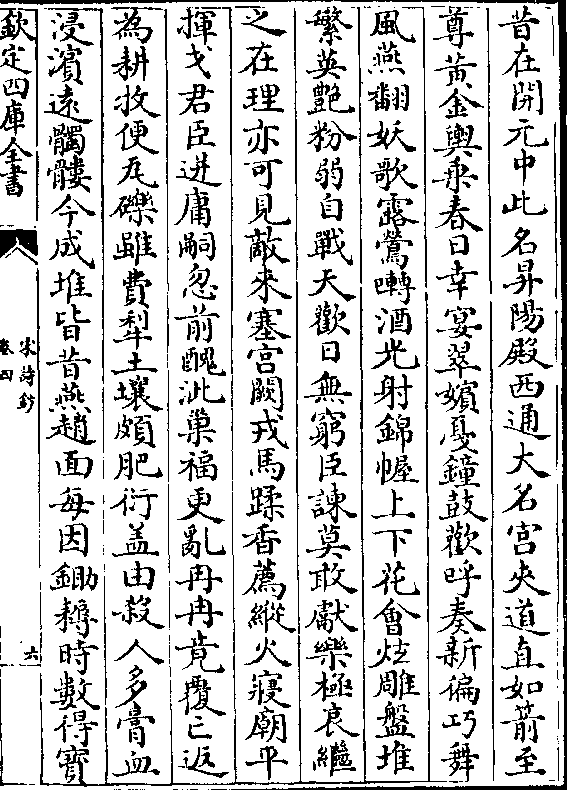 昔在開元中此名昇陽殿西通大名宫夾道直如箭至
尊黄金輿乗春日幸宴翠嬪戞鐘鼓歡呼奏新徧巧舞
風燕翻妖歌露鶯囀酒光射錦幄上下花㑹炫雕盤堆
繁英艶粉弱自戰天歡日無窮臣諫莫敢獻樂極哀繼
之在理亦可見敵来塞宫闕戎馬蹂香薦縱火寢廟平
揮戈君臣迸庸嗣忽前醜泚巢福更亂冉冉竟覆亡返
為耕牧便瓦礫雖費犁土壤頗肥衍盖由殺人多膏血
浸濵逺髑髏今成堆皆昔燕趙面每因鋤耨時數得寳
欽定四庫全書
宋詩鈔
卷四
六